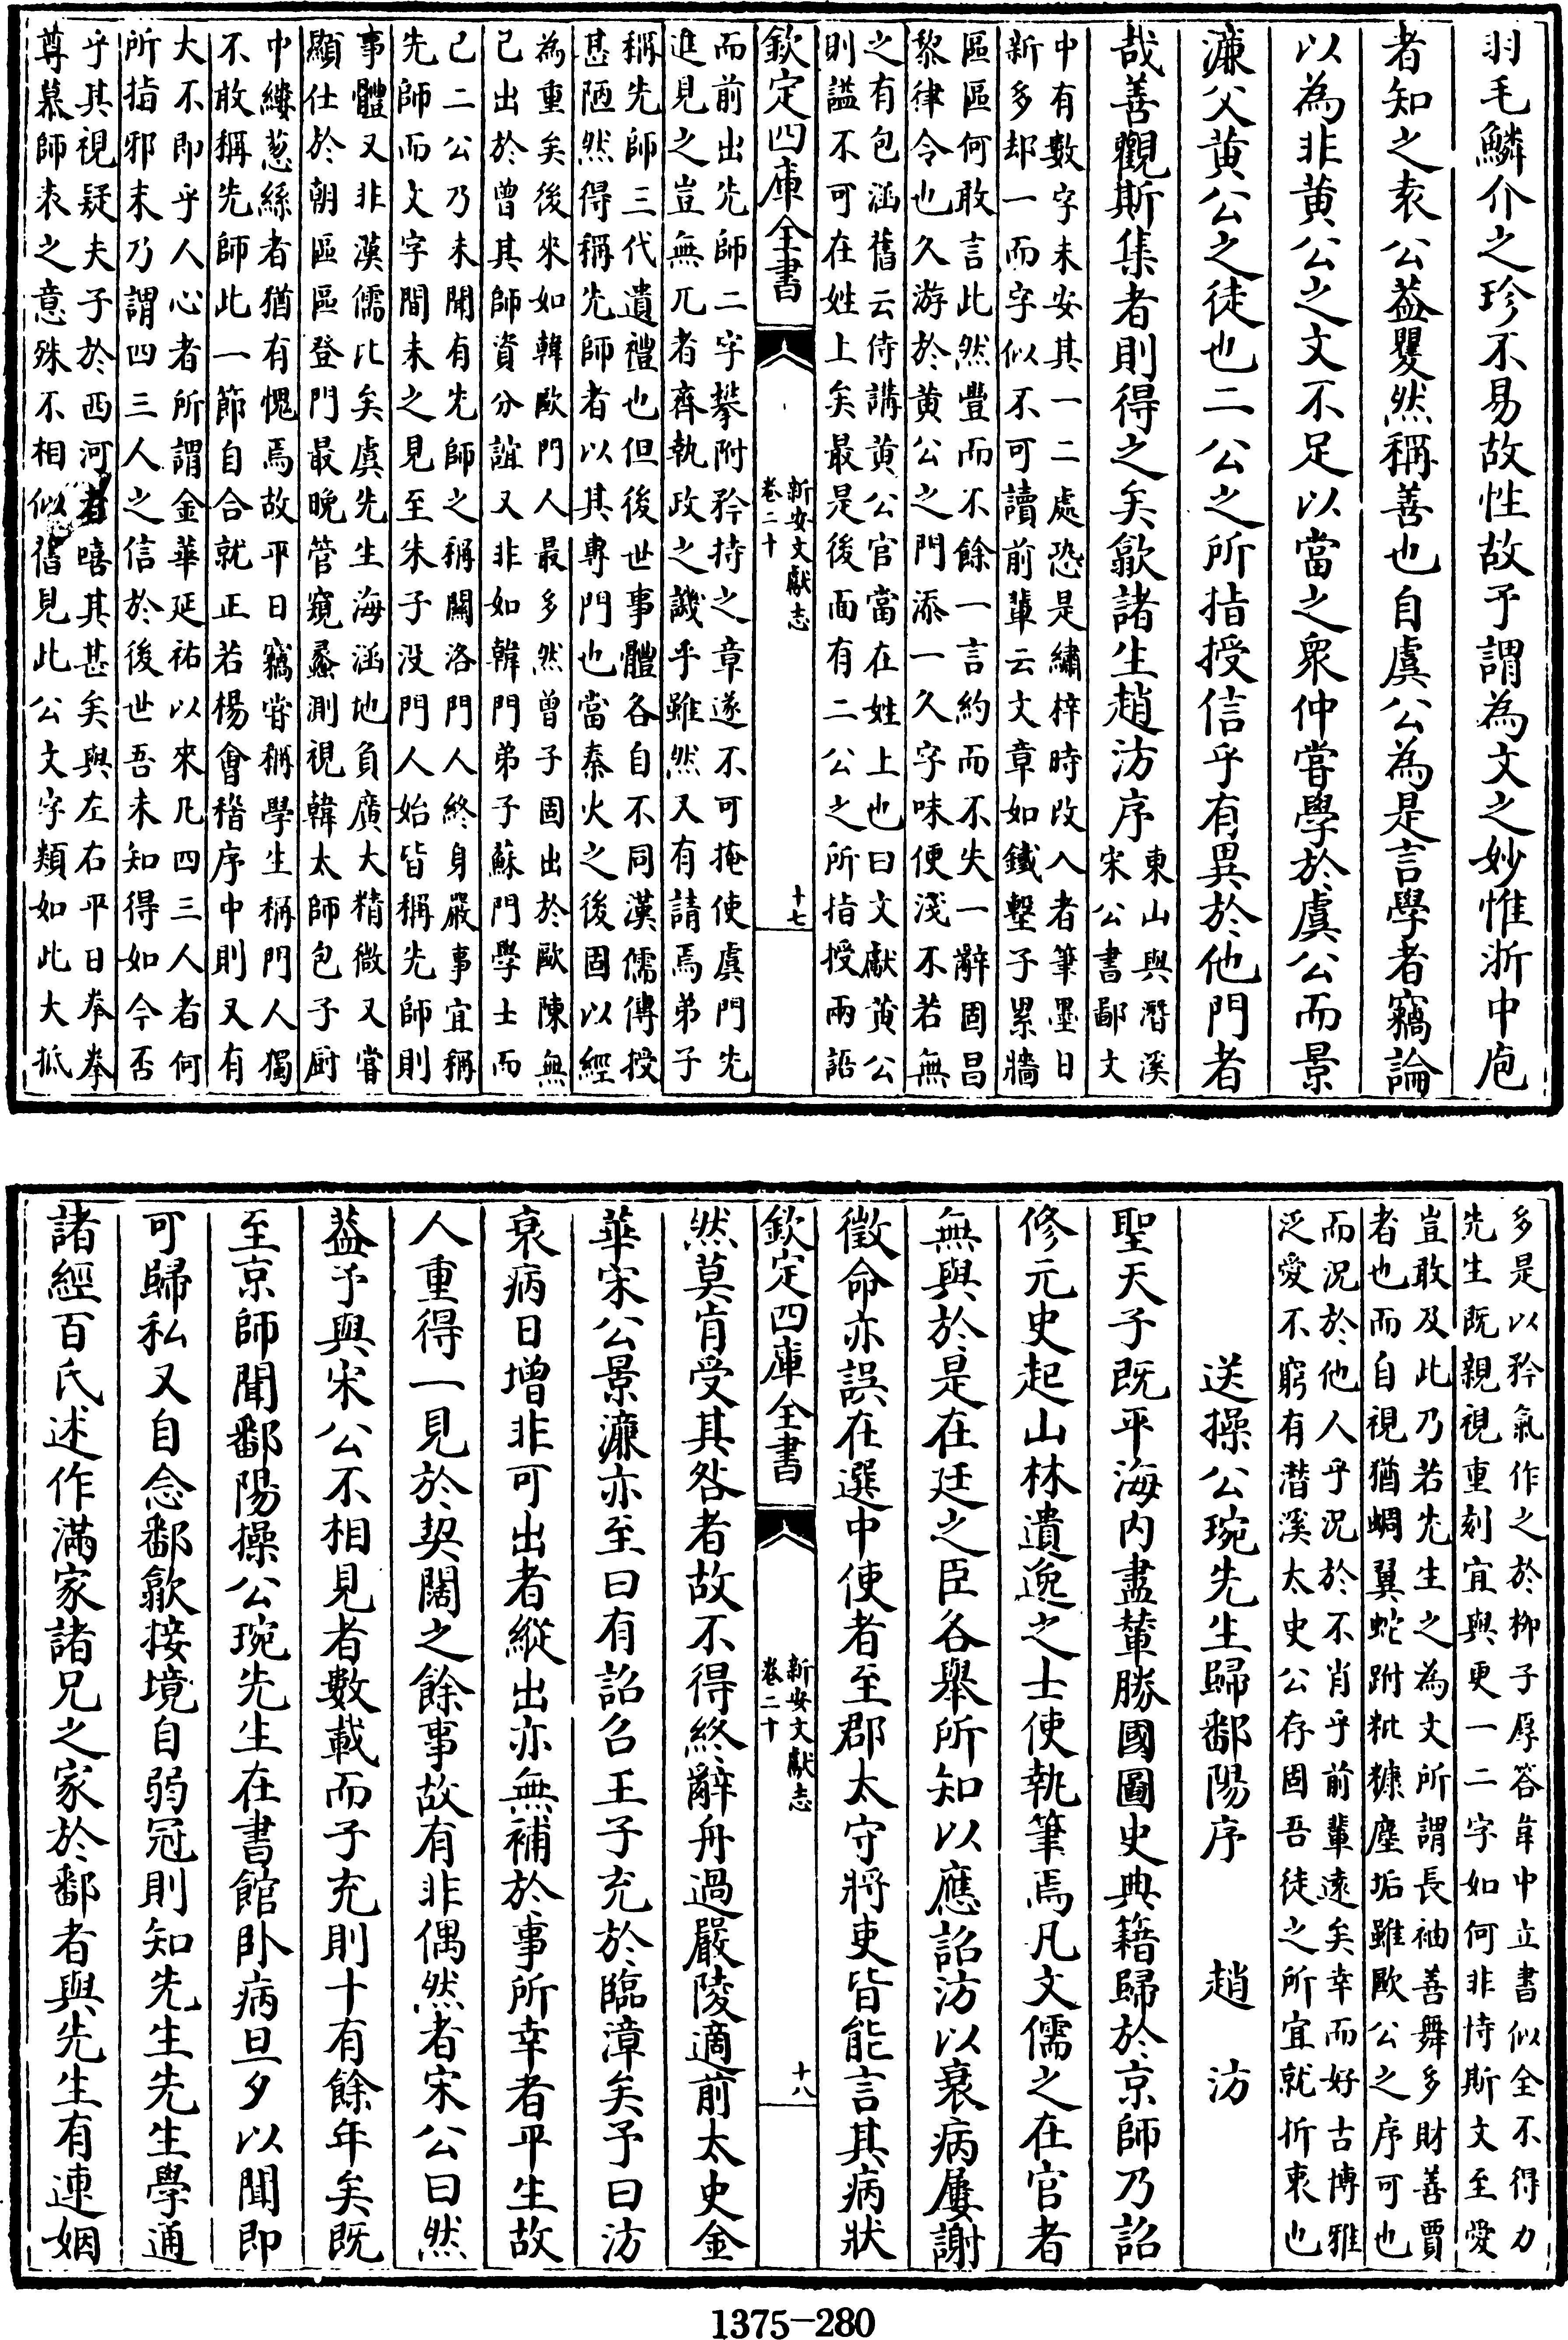 羽毛鱗介之珍不易故性故予謂為文之妙惟浙中庖
者知之袁公益矍然稱善也自虞公為是言學者竊論
以為非黄公之文不足以當之衆仲嘗學於虞公而景
濂父黄公之徒也二公之所指授信乎有異於他門者
哉善觀斯集者則得之矣歙諸生趙汸序
東山與濳溪
宋公書鄙文
中有數字未安其一二處恐是繡梓時改入者筆墨日
新多却一而字似不可讀前輩云文章如鐵塹子累牆
區區何敢言此然豐而不餘一言約而不失一辭固昌
黎律令也久游於黄公之門添一久字味便淺不若無
之有包涵舊云侍講黄公官當在姓上也曰文獻黄公
則諡不可在姓上矣最是後面有二公之所指授兩語
欽定四庫全書
新安文獻志
卷二十
十七
而前出先師二字攀附矜持之章遂不可掩使虞門先
進見之豈無兀者齊執政之譏乎雖然又有請焉弟子
稱先師三代遺禮也但後世事體各自不同漢儒傳授
甚陋然得稱先師者以其專門也當秦火之後固以經
為重矣後來如韓歐門人最多然曾子固出於歐陳無
己出於曾其師資分誼又非如韓門弟子蘇門學士而
己二公乃未聞有先師之稱關洛門人終身嚴事宜稱
先師而文字間未之見至朱子没門人始皆稱先師則
事體又非漢儒比矣虞先生海涵地負廣大精微又嘗
顯仕於朝區區登門最晚管窺蠡測視韓太師包子厨
中縷葱絲者猶有愧焉故平日竊嘗稱學生稱門人獨
不敢稱先師此一節自合就正若楊會稽序中則又有
大不即乎人心者所謂金華延祐以來凡四三人者何
所指邪末乃謂四三人之信於後世吾未知得如今否
乎其視疑夫子於西河者嘻其甚矣與左右平日拳拳
尊慕師表之意殊不相似舊見此公文字類如此大抵
多是以矜氣作之於栁子厚答韋中立書似全不得力
先生既親視重刻宜與更一二字如何非恃斯文至愛
豈敢及此乃若先生之為文所謂長袖善舞多財善賈
者也而自視猶蜩翼蛇跗粃糠塵垢雖歐公之序可也
而况於他人乎况於不肖乎前輩遠矣幸而好古博雅
泛愛不窮有潜溪太史公存固吾徒之所宜就折衷也
送操公琬先生歸鄱陽序　趙汸
聖天子既平海内盡輦勝國圖史典籍歸於京師乃詔
修元史起山林遺逸之士使執筆焉凡文儒之在官者
無與於是在廷之臣各舉所知以應詔汸以衰病屢謝
徵命亦誤在選中使者至郡太守將吏皆能言其病狀
欽定四庫全書
新安文獻志
卷二十
十八
然莫肯受其咎者故不得終辭舟過嚴陵適前太史金
華宋公景濂亦至曰有詔召王子充於臨漳矣予曰汸
衰病日增非可出者縱出亦無補於事所幸者平生故
人重得一見於契闊之餘事故有非偶然者宋公曰然
益予與宋公不相見者數載而子充則十有餘年矣既
至京師聞鄱陽操公琬先生在書館卧病旦夕以聞即
可歸私又自念鄱歙接境自弱冠則知先生先生學通
諸經百氏述作滿家諸兄之家於鄱者與先生有連姻
1375-280